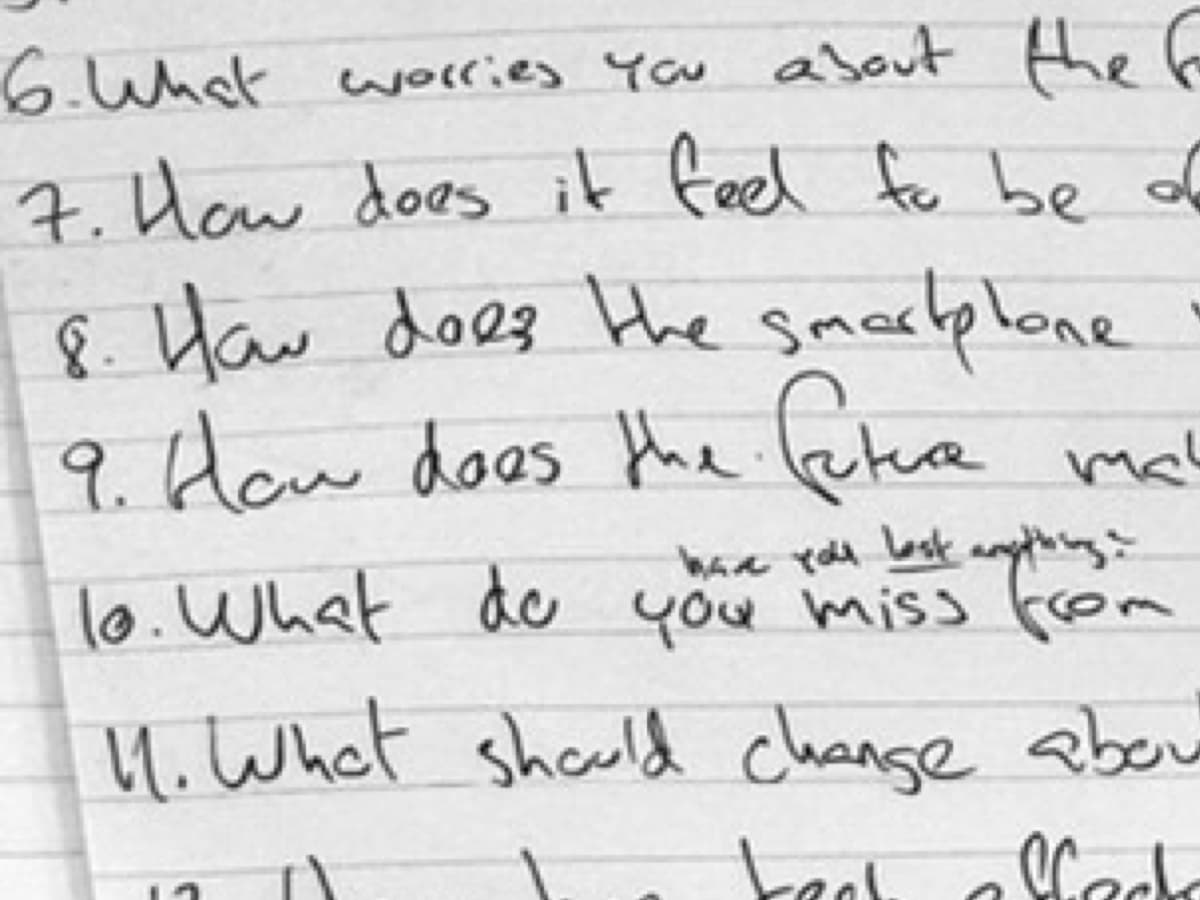 6. What worries you about the f
7. How does it feel to be of
8. How does the smartphone
9. How does the future mak
have you lost anything?
10. What do you miss from
11. What should change abou
12. How has tech affect